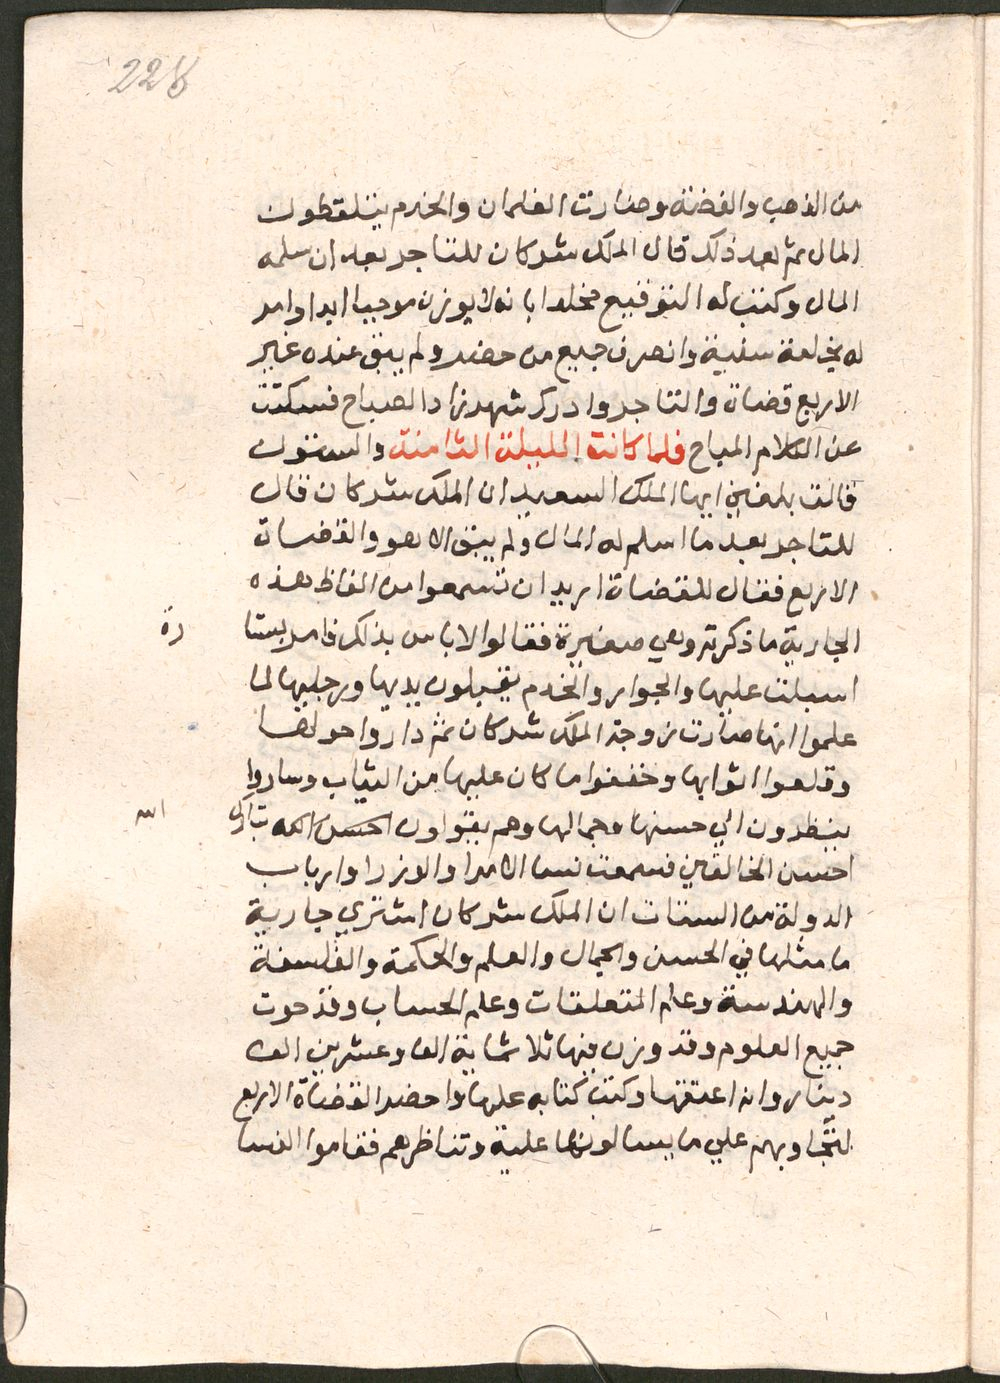 228
من الذهب والفضة وصارت الغلمان والخدم يتلقطون
المال ثم بعد ذلك قال الملك شركان للتاجر بعد ان سلمه
المال وكتب له التوقيع مخلدا بانه لا يوزن موجبا ابدا وامر
له بخلعة سنية وانصرف جميع من حضر ولم يبق عنده غير
الاربع قضاة والتاجر وادرك شهرزاد الصباح فسكتت
عن الكلام المباح فلما كانت الليلة الثامنة والستون
قالت بلغني ايها الملك السعيد ان الملك شركان قال
للتاجر بعد ما اسلم له المال ولم يبق الا هو والقضاة
الاربع فقال للقضاة اريد ان تسمعوا من الفاظ هذه
الجارية ما ذكرته وهي صغيرة فقالوا لا باس بذلك فامر بستا
رة
اسبلت عليها والجوار والخدم يقبلون يديها ورجليها لما
علموا انها صارت زوجة الملك شركان ثم داروا حولها
وقلعوا اثوابها وخففوا ما كان عليها من الثياب وصاروا
ينظرون الي حسنها وجمالها وهم يقولون تبارك
الله
احسن الخالقين فسمعت نسا الامرا والوزرا وارباب
الدولة من الستات ان الملك شركان اشتري جارية
ما مثلها في الحسن والجمال والعلم والحكمة والفلسفة
والهندسة وعلم المتعلقات وعلم الحساب وقد حوت
جميع العلوم وقد وزن فيها ثلاثماية الف وعشرين الف
دينار وانه اعتقها وكتب كتابه عليها واحضر القضاة الاربع
لتجاوبهم علي ما يسالونها علية وتناظرهم فقاموا النسا